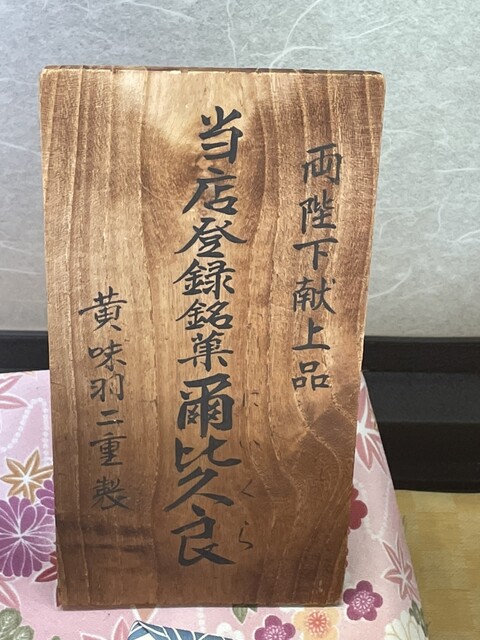 両陛下献上品
当店登録銘菓爾比久良
にいくら
黄味羽二重製